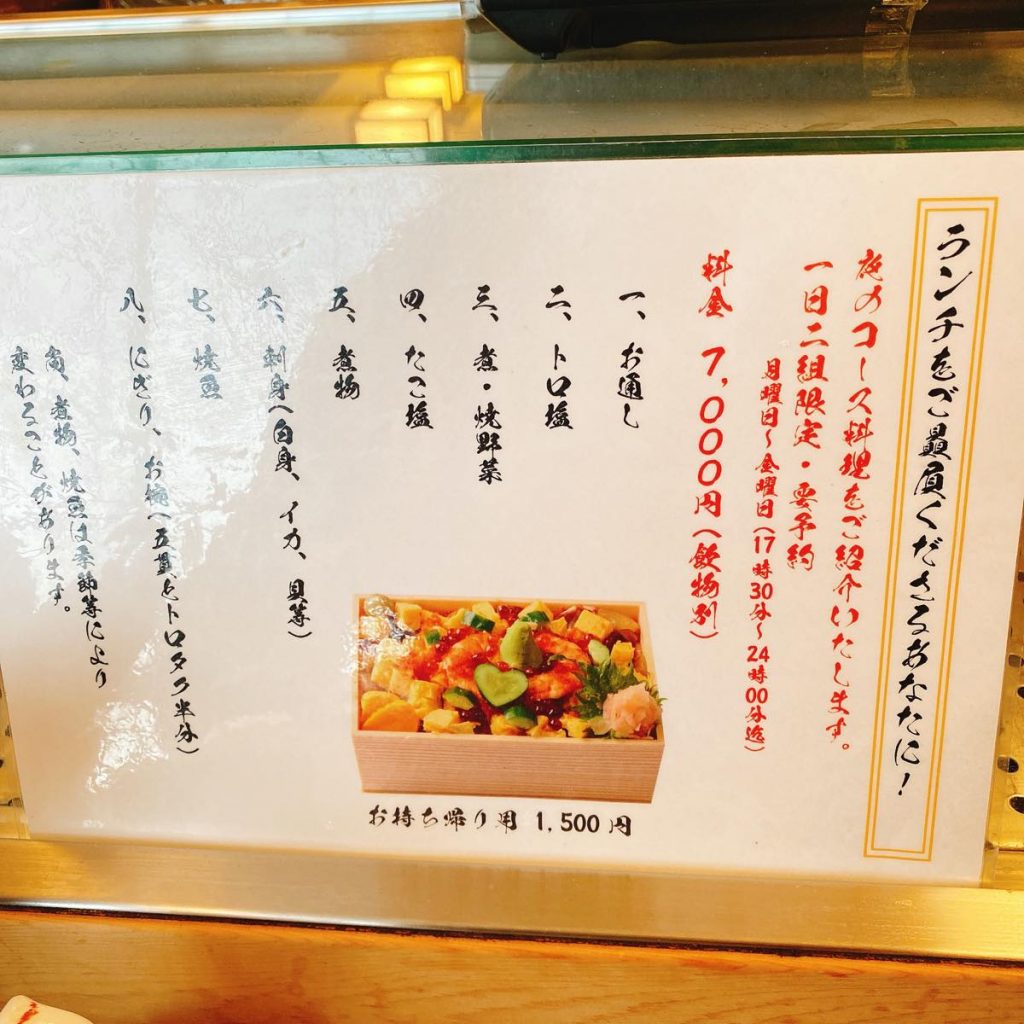 ランチをご贔屓くださるあなたに!
夜のコース料理をご紹介いたします。
一日二組限定・要予約
月曜日~金曜日(17時30分~24時00分迄)
料金 7,000円(飲物別)
一、お通し
二、トロ塩
三、煮・焼野菜
四、たこ塩
五、煮物
六、刺身(白身、イカ、貝等)
七、焼魚
八、にぎり、お椀(五貫とトロタク半分)
尚、煮物、焼魚は季節等により
変わることがあります。
お持ち帰り用 1,500円